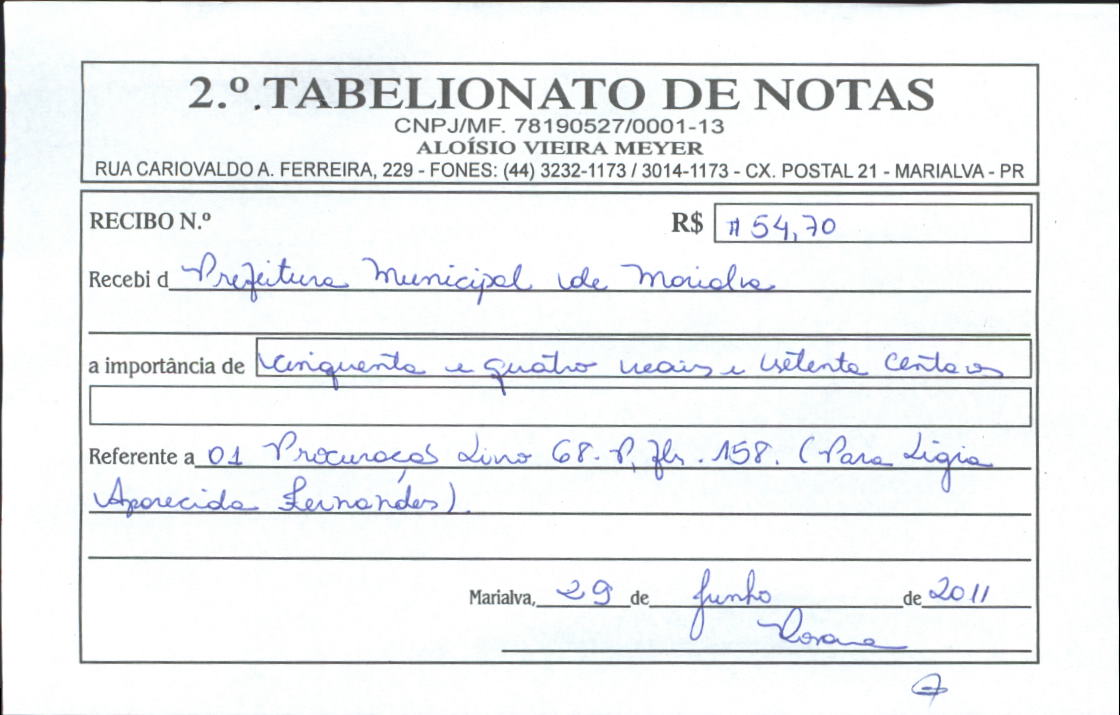 2.º TABELIONATO DE NOTAS
CNPJ/MF. 78190527/0001-13
ALOÍSIO VIEIRA MEYER
RUA CARIOVALDO A. FERREIRA, 229 - FONES: (44) 3232-1173 / 3014-1173 - CX. POSTAL 21 - MARIALVA - PR
RECIBO N.º R$ # 54,70
Recebi d Prefeitura Municipal de Marialva
a importância de Cinquenta e quatro reais e setenta centavos
Referente a 01 Procuração Livro 68-P, fls. 158. (Para Ligia
Aparecida Fernandes).
Marialva, 29 de Junho de 2011
Rosana